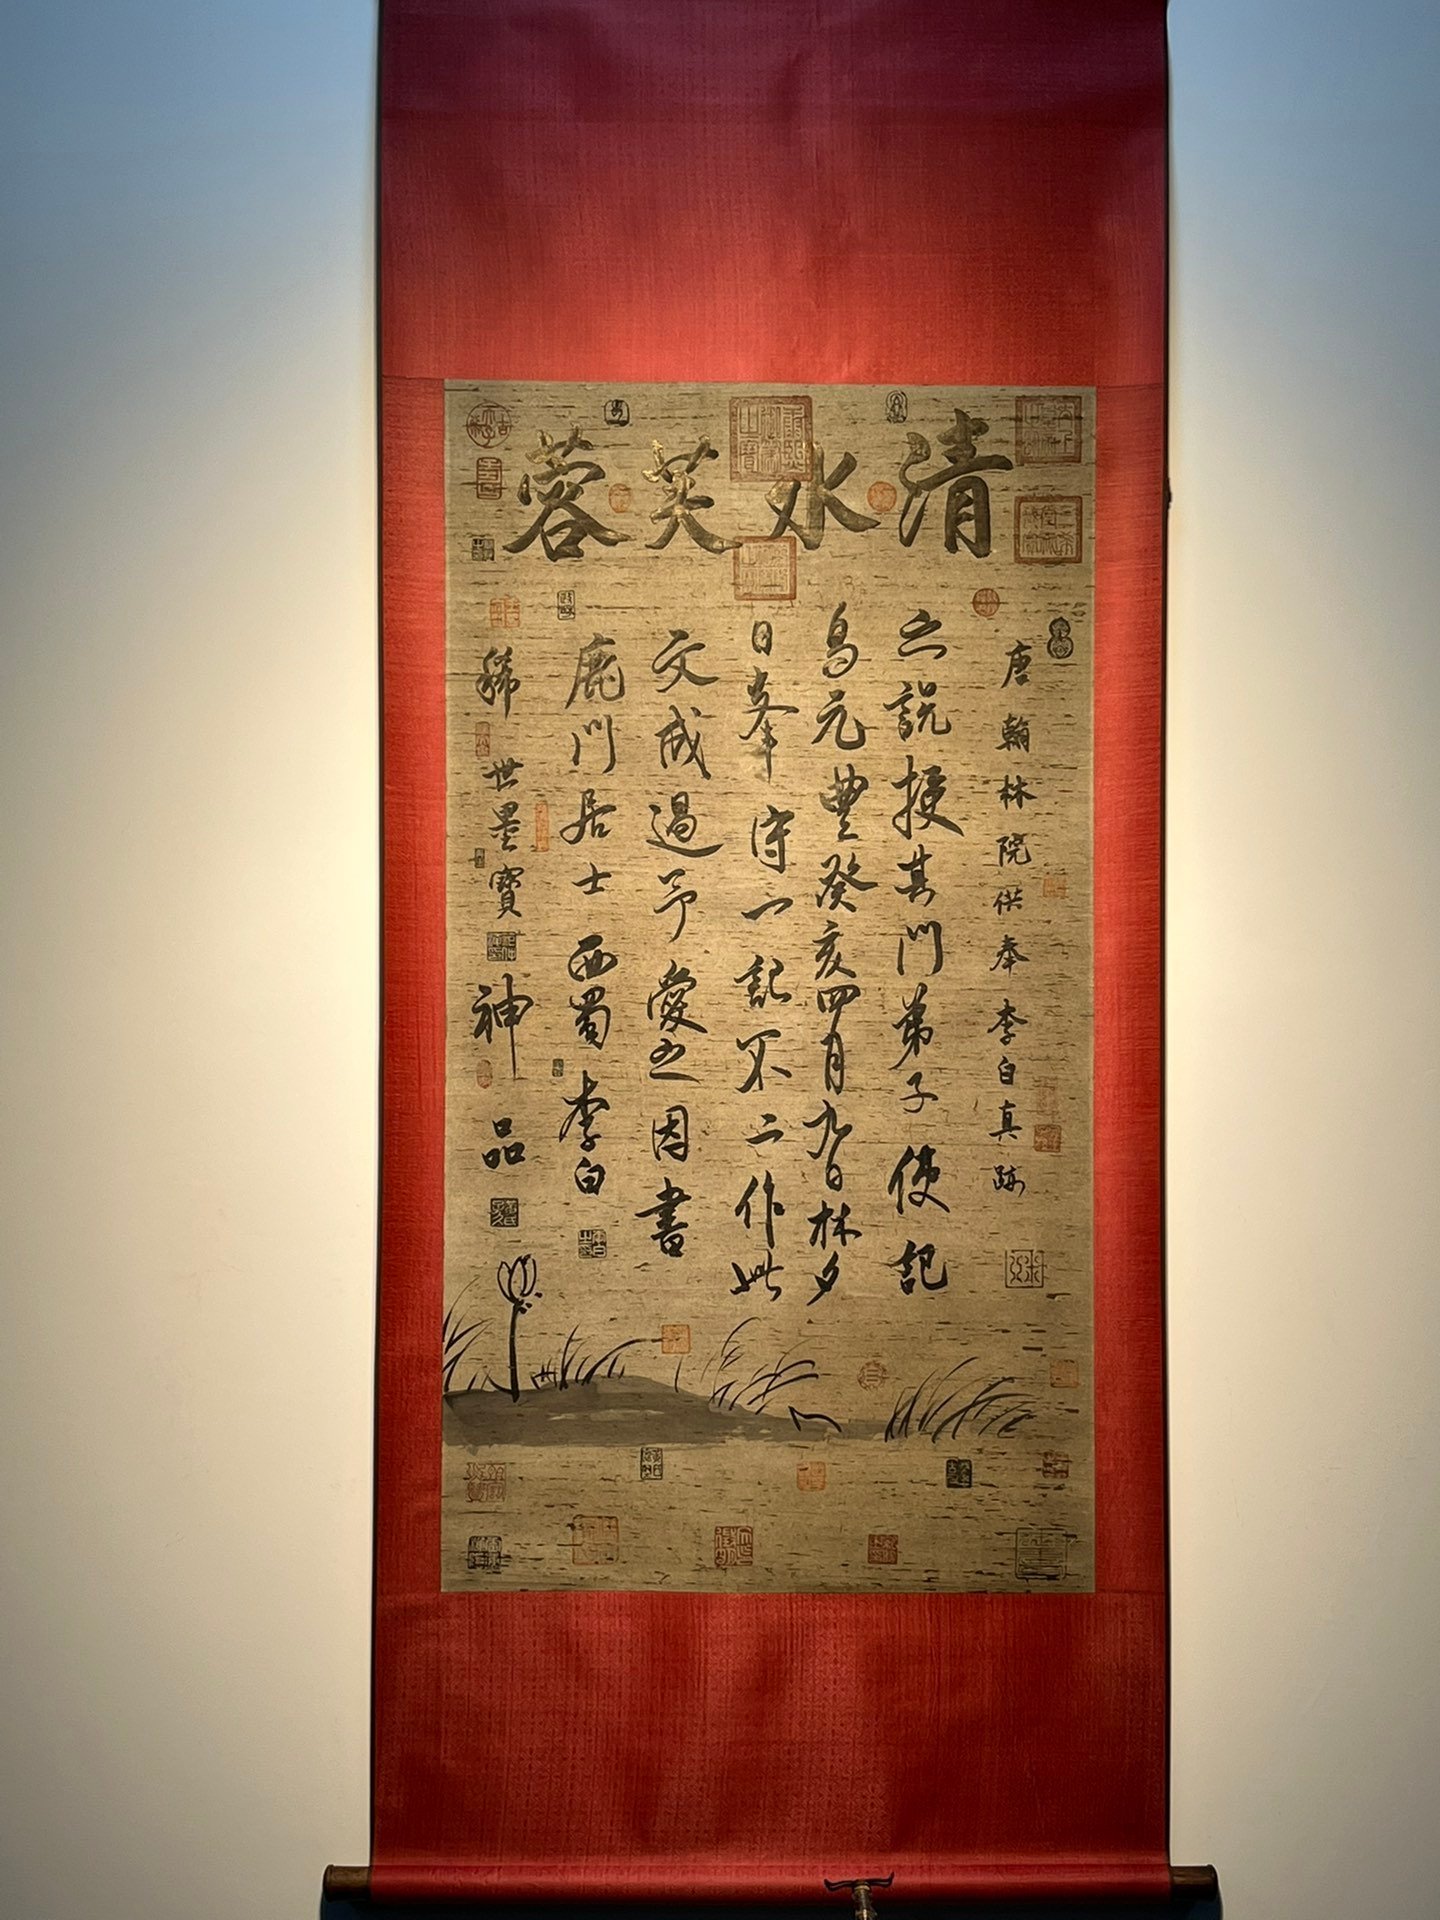 清水芙蓉
唐翰林院供奉李白真跡
之說授其門弟子使記
焉元豐癸亥四月九日林夕
日峯守一記不二作此
文成過予愛之因書
鹿門居士 西蜀 李白
稀世墨寶 神品